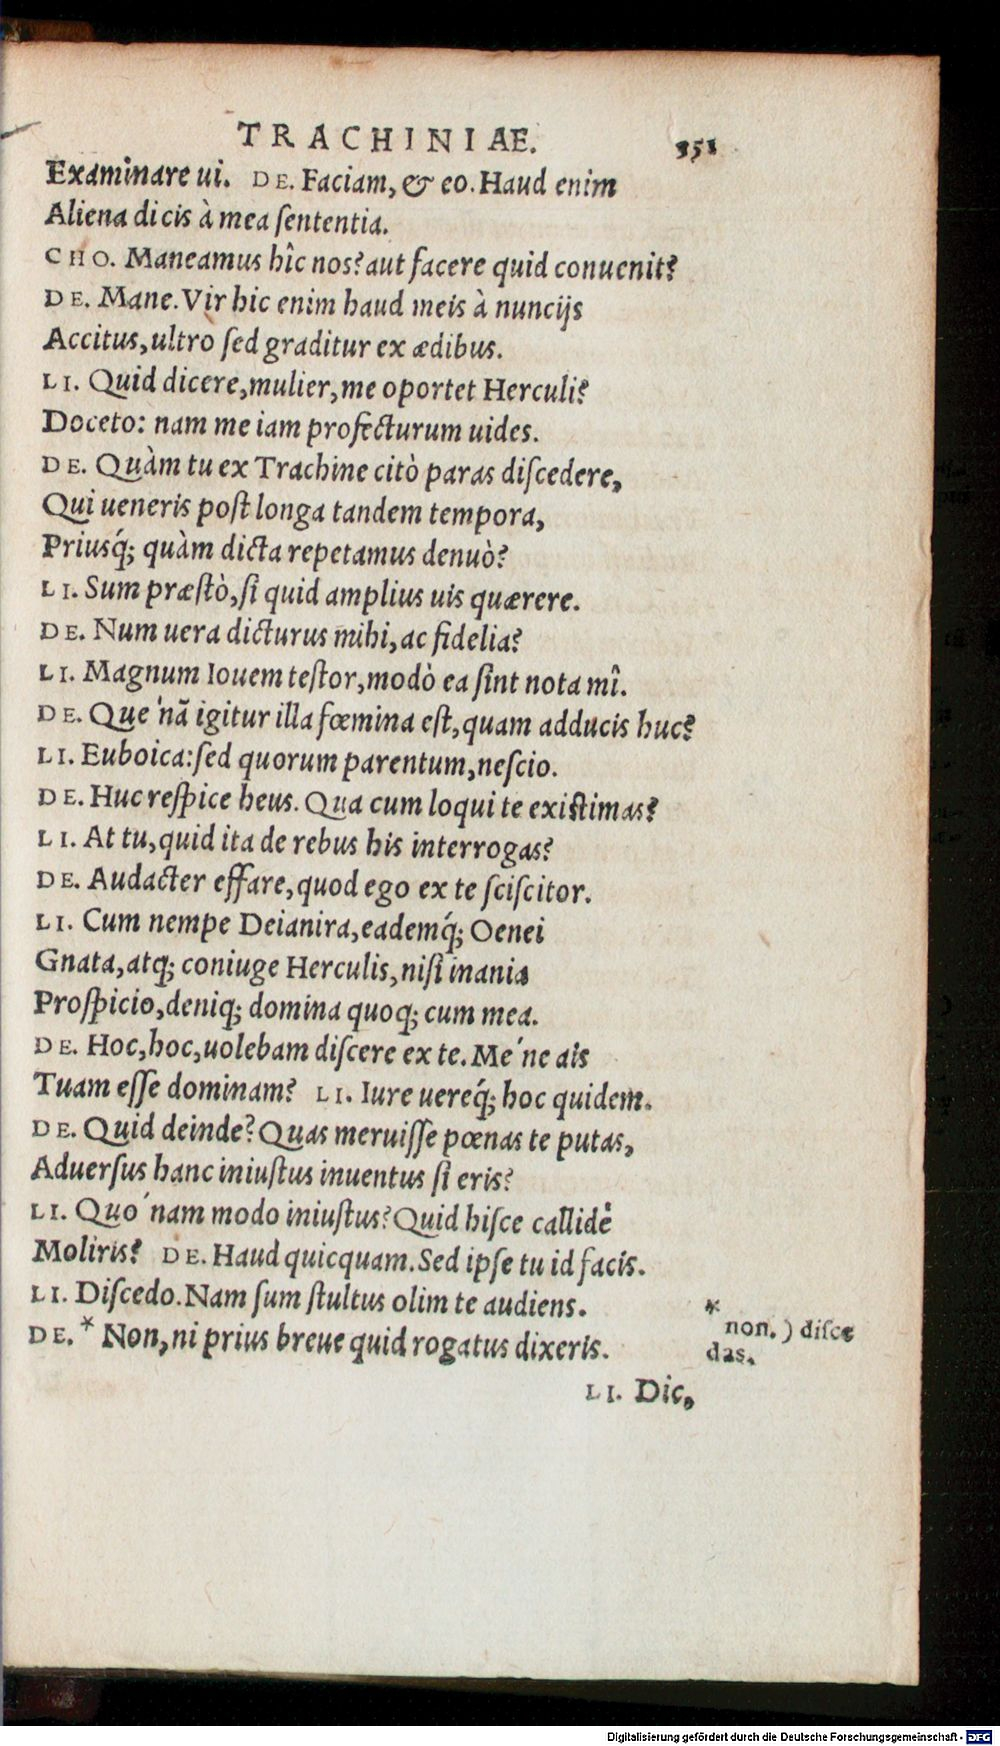 TRACHINIAE. 351
Examinare ui. DE. Faciam, & eo. Haud enim
Aliena dicis à mea ſententia.
CHO. Maneamus hîc nos? aut facere quid conuenit?
DE. Mane. Vir hic enim haud meis à nuncijs
Accitus, ultro ſed graditur ex ædibus.
LI. Quid dicere, mulier, me oportet Herculi?
Doceto: nam me iam profecturum uides.
DE. Quàm tu ex Trachine citò paras diſcedere,
Qui ueneris poſt longa tandem tempora,
Priusq́; quàm dicta repetamus denuò?
LI. Sum præſtò, ſi quid amplius uis quærere.
DE. Num uera dicturus mihi, ac fidelia?
LI. Magnum Iouem teſtor, modò ea ſint nota mî.
DE. Que'nã igitur illa fœmina eſt, quam adducis huc?
LI. Euboica: ſed quorum parentum, neſcio.
DE. Huc reſpice heus. Qua cum loqui te exiſtimas?
LI. At tu, quid ita de rebus his interrogas?
DE. Audacter effare, quod ego ex te ſciſcitor.
LI. Cum nempe Deianira, eademq́; Oenei
Gnata, atq; coniuge Herculis, niſi inania
Proſpicio, deniq; domina quoq; cum mea.
DE. Hoc, hoc, uolebam diſcere ex te. Me'ne ais
Tuam eſſe dominam? LI. Iure uereq́; hoc quidem.
DE. Quid deinde? Quas meruiſſe pœnas te putas,
Aduerſus hanc iniuſtus inuentus ſi eris?
LI. Quo'nam modo iniuſtus? Quid hiſce callidè
Moliris? DE. Haud quicquam. Sed ipſe tu id facis.
LI. Diſcedo. Nam ſum ſtultus olim te audiens.
DE. * Non, ni prius breue quid rogatus dixeris.
*
non.) diſce
das.
LI. Dic,
Digitalisierung gefördert durch die Deutsche Forschungsgemeinschaft - DFG